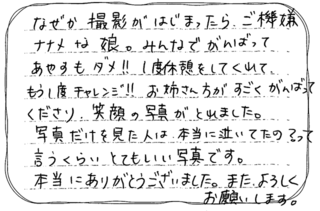 なぜか撮影がはじまったら、ご機嫌
ナナメな娘。みんなでがんばって
あやすもダメ!!1度休憩をしてくれて、
もう1度チャレンジ!!お姉さん方がすごくがんばって
くださり、笑顔の写真がとれました。
写真だけを見た人は、本当に逆いてたの？って
言うくらいとてもいい写真です。
本当にありがとうございました。また、よろしく
お願いします。